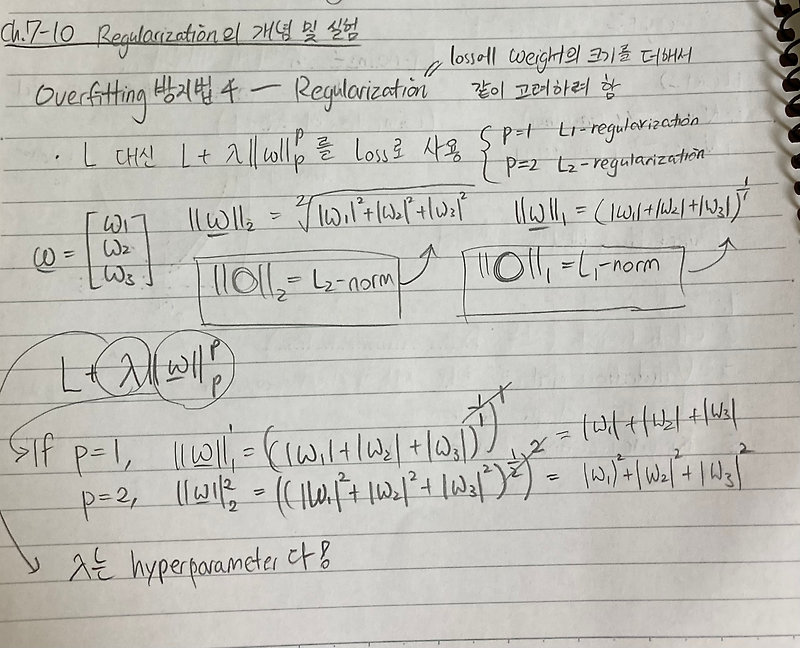 Ch.7-10 Regularization의 개념 및 실험
Overfitting 방지법 4 — Regularization 〃 loss에 weight의 크기를 더해서
같이 고려하려 함
· L 대신 L + λ||w||ₚᵖ 를 Loss로 사용 { p=1 L1-regularization
p=2 L2-regularization
w = [w1 w2 w3] ||w||₂ = ²√(|w1|²+|w2|²+|w3|²) ||w||₁ = (|w1|+|w2|+|w3|)^(1/1)
||O||₂ = L2-norm ||O||₁ = L1-norm
L + λ||w||ₚᵖ
If p=1, ||w||₁¹ = ((|w1|+|w2|+|w3|)^(1/1))¹ = |w1|+|w2|+|w3|
p=2, ||w||₂² = ((|w1|²+|w2|²+|w3|²)^(1/2))² = |w1|²+|w2|²+|w3|²
λ는 hyperparameter다!